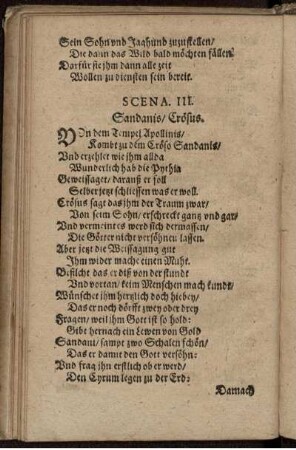 Sein Sohn vnd Jaghund zuzustellen/
Die dann das Wild bald möchten fällen:
Darfür sie jhm dann alle zeit
Wollen zu diensten sein bereit.
SCENA. III.
Sandanis/ Crösus.
VOn dem Tempel Apollinis/
Kombt zu dem Cröso Sandanis/
Vnd erzehlet wie jhm allda
Wunderlich hab die Pythia
Geweissaget/ darauß er soll
Selber jetzt schliessen was er woll.
Crösus sagt das jhm der Traum zwar/
Von seim Sohn/ erschreckt gantz vnd gar/
Vnd vermeint es werd sich dermassen/
Die Götter nicht versöhnen lassen.
Aber jetzt die Weissagung gut
Jhm wider mache einen Muht.
Befilcht das er diß von der stundt
Vnd vortan/ keim Menschen mach kundt/
Wünschet jhm hertzlich doch hiebey/
Das er noch dörfft zwey oder drey
Fragen/ weil jhm Gott ist so hold:
Gibt hernach ein Lewen von Gold
Sandani/ sampt zwo Schalen schön/
Das er damit den Gott versöhn:
Vnd frag jhn erstlich ob er werd/
Den Cyrum legen zu der Erd:
Darnach